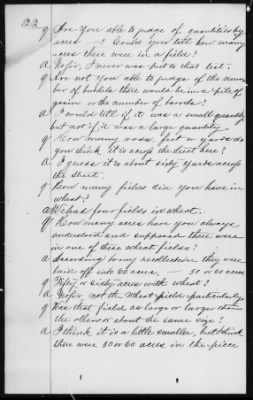 22
Q Are you able to judge of quantities by
acres —? Could you tell how many
acres there were in a field?
A No sir, I never was put to that test.
Q Are not you able to judge of the num
ber of bushels there would be in a pile of
grain or the number of barrels?
A I could tell if it was a small quantity
but not if it was a large quantity.
Q How many rods, feet or yards do
you think it is across the street here?
A I guess it is about sixty yards across
the street.
Q How many fields did you have in
wheat?
A We had four fields in wheat.
Q How many acres have you always
understood and supposed there were
in one of these wheat fields?
A According to my recollection they were
laid off into 60 acres, — 50 or 60 acres
Q Fifty or sixty acres with wheat?
A No sir, not the wheat field particularly
Q Was that field as large or larger than
the others or about the same size?
A I think it is a little smaller, but I think
there were 50 or 60 acres in the piece